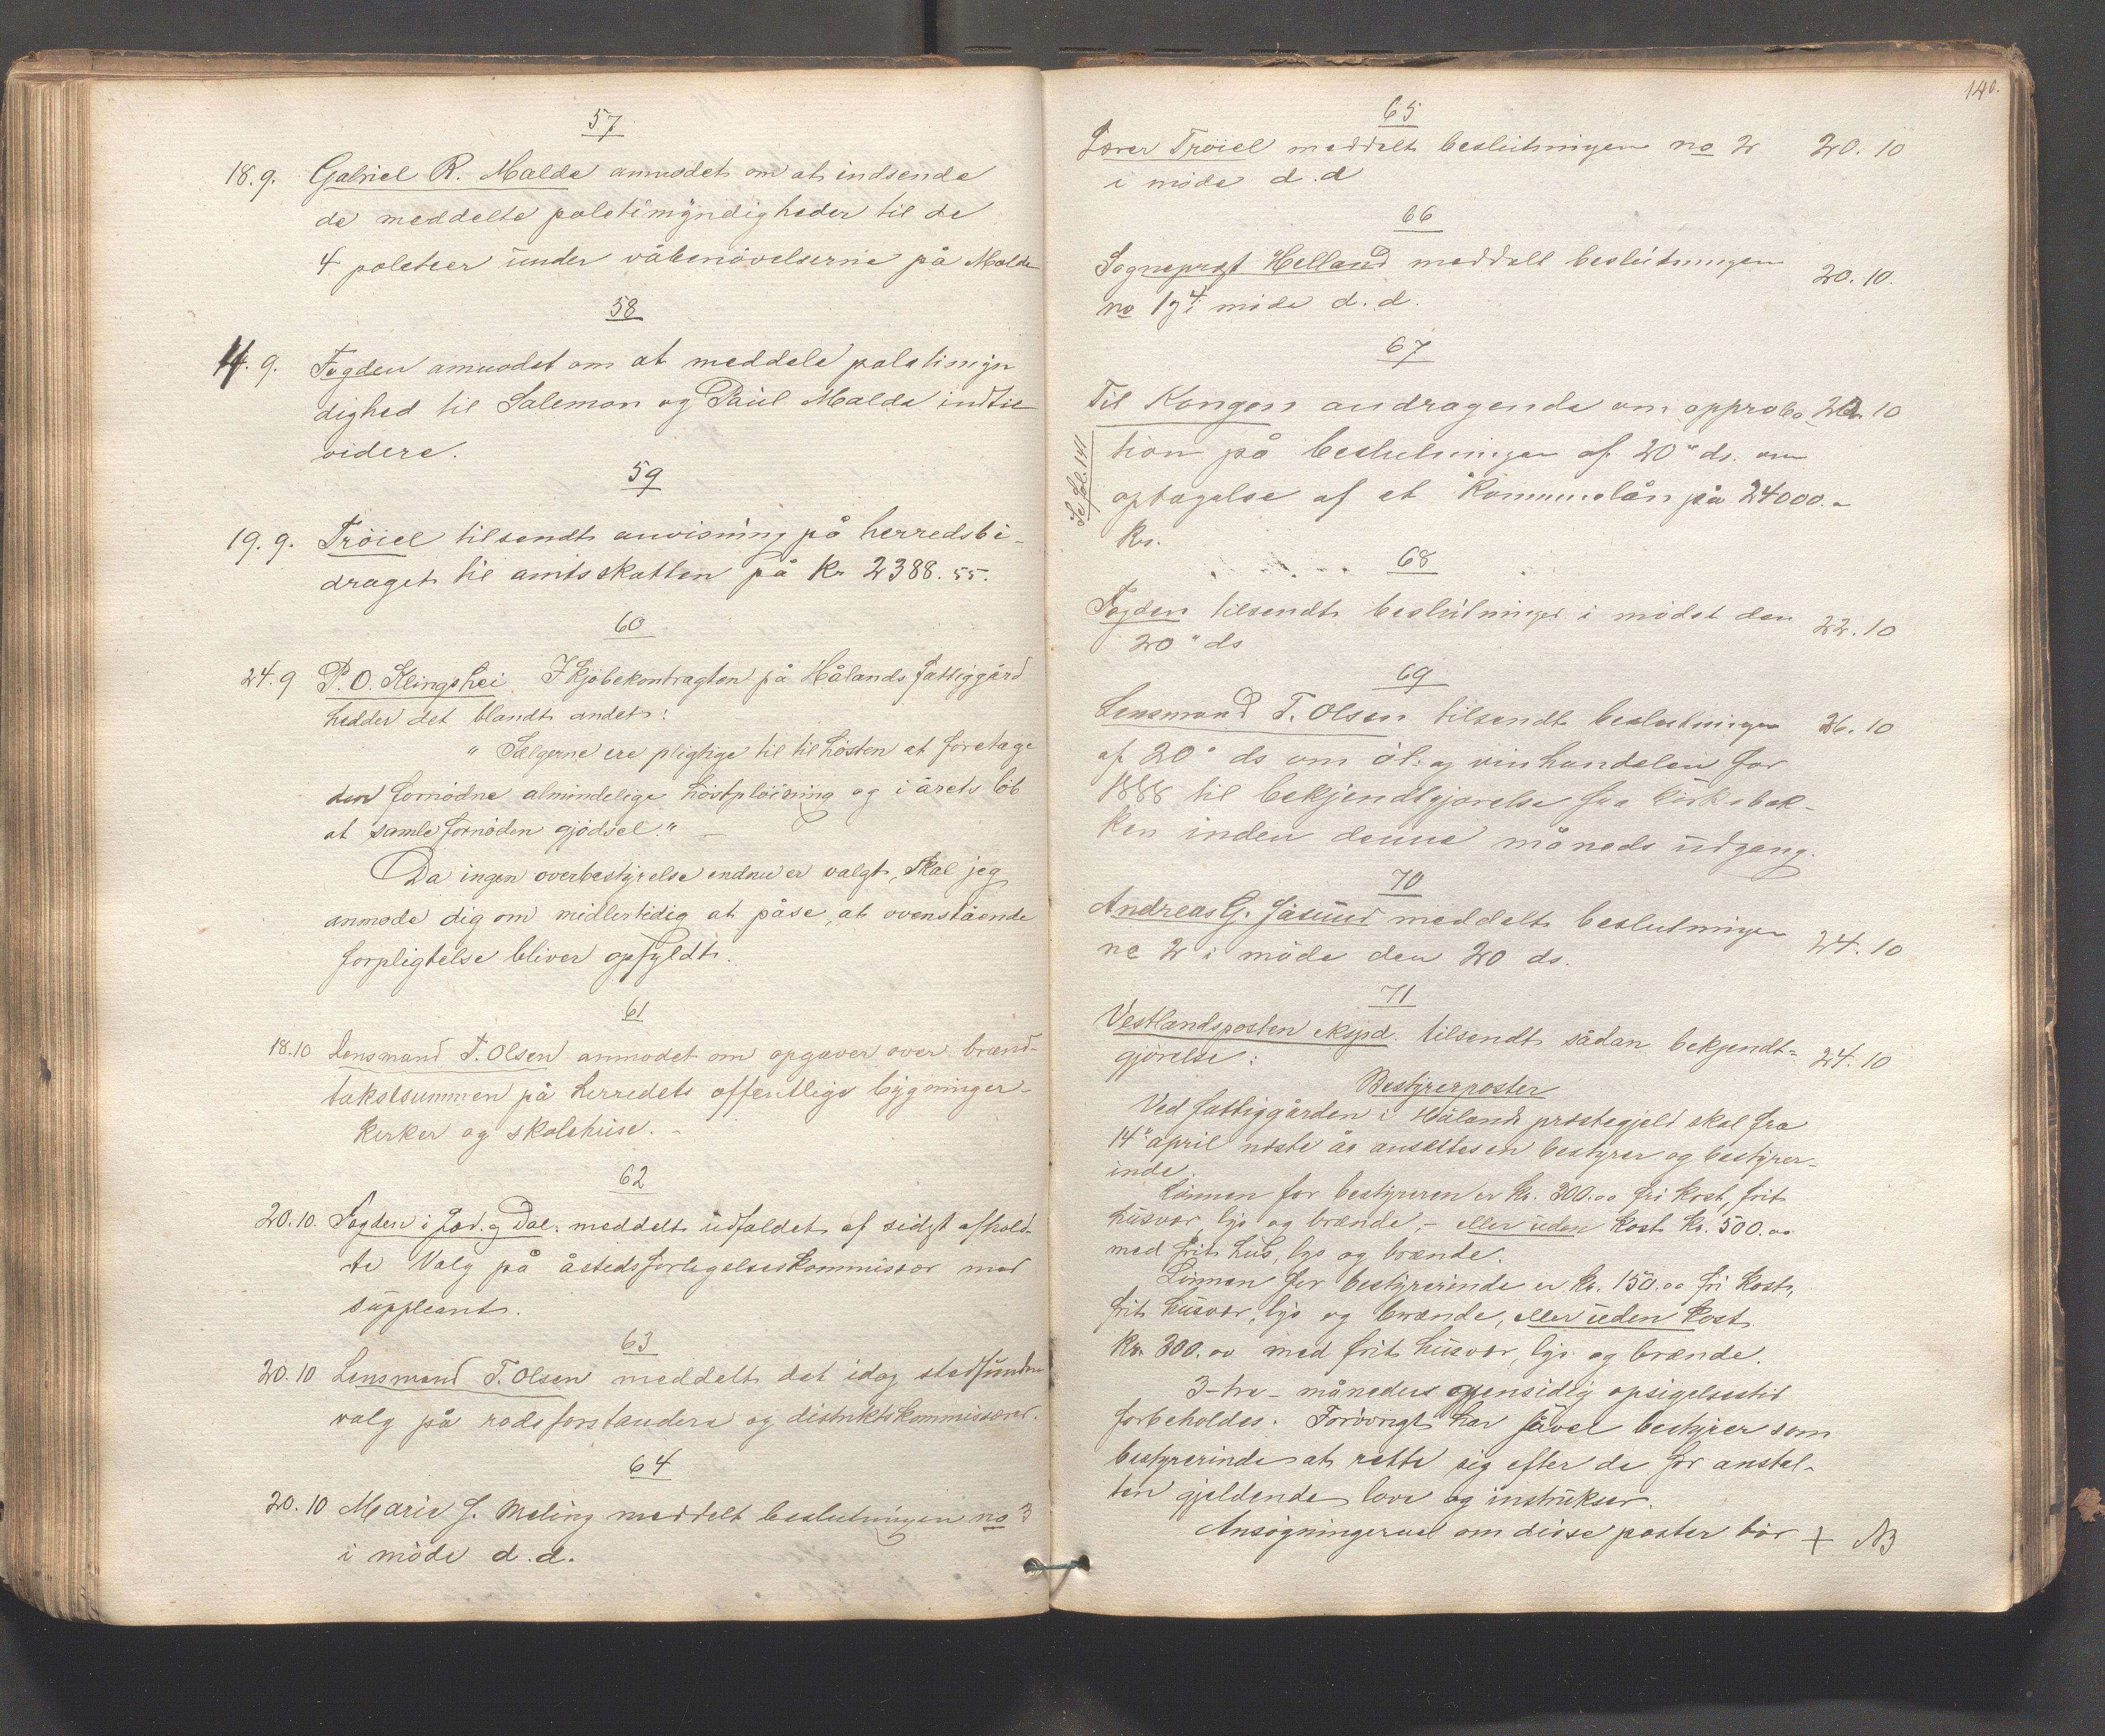 57
18. 9. Gabriel R. Malde anmodet om at indsende
de meddelte politimyndigheder til de
4 politier under våbenøvelserne på Malde
58
14. 9. Fogden anmodet om at meddele politimyn
dighed til Salemon og Paul Malde indtil
videre.
59
19. 9. Tröiel tilsendt anvisning på herredsbi-
draget til amtsskatten på Kr 2388. 55.
60
24. 9 P. O. Klingshei I Kjöbekontragten på Hålands Fattiggård
hedder det blandt andet:
" Sælgerne ere pligtige til til hösten at foretage
den fornødne almindelige höstplöining og i årets löb
at samle fornöden gjödsel." -
Da ingen overbestyrelse endnu er valgt, skal jeg
anmode dig om midlertidig at påse, at ovenstående
forpligtelse bliver opfyldt.
61
18.10 Lensmand T. Olsen anmodet om opgaver over brand-
takstsummen på herredets offentlige bygninger -
Kirker og skolehuse. -
62
20.10. Fogden i Jæd. og Dal. meddelt udfaldet af sidst afhold-
te Valg på åstedsforligelseskommissær med
suppleant.
63
20. 10 Lensmand T. Olsen meddelt det idag stedfundne
valg på rodeforstandere og distriktskommissærer.
64
20. 10 Marie J. Meling meddelt beslutningen no 3
i möde d. d.
140.
65
Lærer Tröiel meddelt beslutningen no 2 20. 10
i möde d. d
66
Sogneprest Helland meddelt beslutningen 20. 10.
no 1 og 4 i möde d. d.
67
Til Kongen andragende om approba- 22. 10
tion på beslutningen af 20" ds. om
optagelse af et Kommunelån på 24000.-
Kr.
Se fol. 141
68
Fogden tilsendt beslutninger i mödet den 22. 10
20" ds
69
Lensmand T. Olsen tilsendt beslutningen 26. 10
af 20" ds om öl- og vinhandelen for
1888 til bekjendtgjörelse fra kirkebak-
ken inden denne måneds udgang.
70
Andreas G. Jåsund meddelt beslutningen 24. 10
no 2 i möde den 20 ds.
71
Vestlandsposten eksped. tilsendt sådan bekjendt- 24. 10
gjörelse:
Bestyrerposter
Ved fattiggården i Hålands præstegjeld skal fra
14" april næste år ansættes en bestyrer og bestyrer-
inde.
Lönnen for bestyreren er kr. 300.00 fri kost, frit
husvær, lys og brænde, - eller uden kost kr. 500.00
med frit hus, lys og brænde.
Lönnen for bestyrerinde er kr. 150.00 fri kost,
frit husvær, lys og brænde, eller uden kost
kr. 300.00 med frit husvær, lys og brænde.
3 - tre - måneders gjensidig opsigelsestid
forbeholdes. Forövrigt har såvel bestyrer som
bestyrerinde at rette sig efter de for anstal-
ten gjeldende love og instrukser.
Ansögninger om disse poster bör + NB